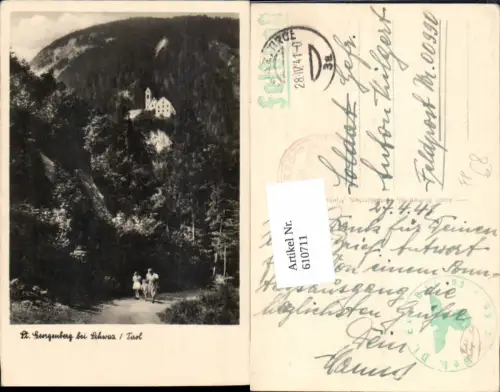 St. Georgenberg bei Schwaz / Tirol
Feldpost
28.IV.41-0
3a
Soldat Gefr.
Anton Hilgert
Feldpost Nr. 00930
68
27.4.41
Artikel Nr.
610711
Dank für Deinen
Brief, Antwort
von einem Sonn-
tagsausgang die
herzlichsten Grüsse
Dein
Hanns